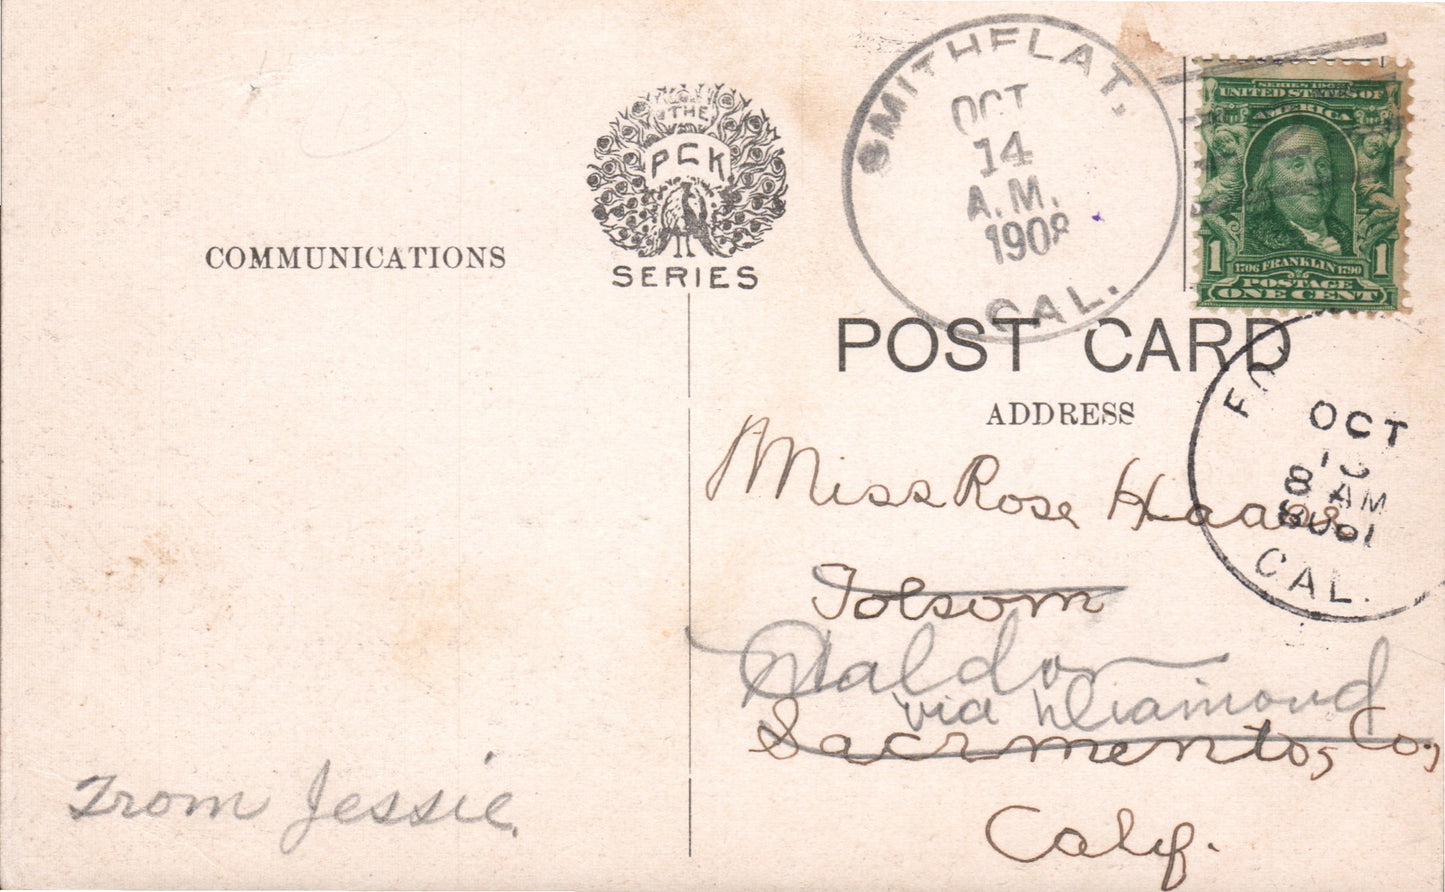 THE
PCK
SERIES
COMMUNICATIONS
SMITHFLAT,
OCT
14
A.M.
1908
CAL.
SERIES 1902
UNITED STATES OF
AMERICA
1 1706 FRANKLIN 1790 1
POSTAGE
ONE CENT
POST CARD
ADDRESS
OCT
8 AM
CAL.
Miss Rose Haas
Folsom
Waldo
via Diamond
Sacrmento, Co,
Calif.
From Jessie.